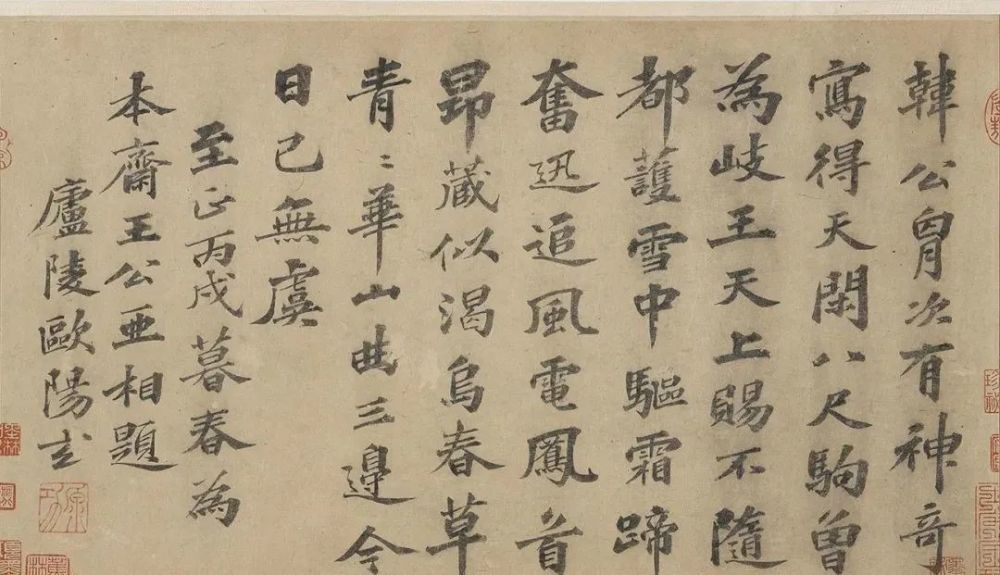 韓公胷次有神奇
寫得天閑八尺駒曾
為岐王天上賜不隨
都護雪中驅霜蹄
奮迅追風電鳳首
昂藏似渴烏春草
青〻華山曲三邉今
日已無虞
至正丙戌暮春為
本齋王公亞相題
廬陵歐陽玄
原功